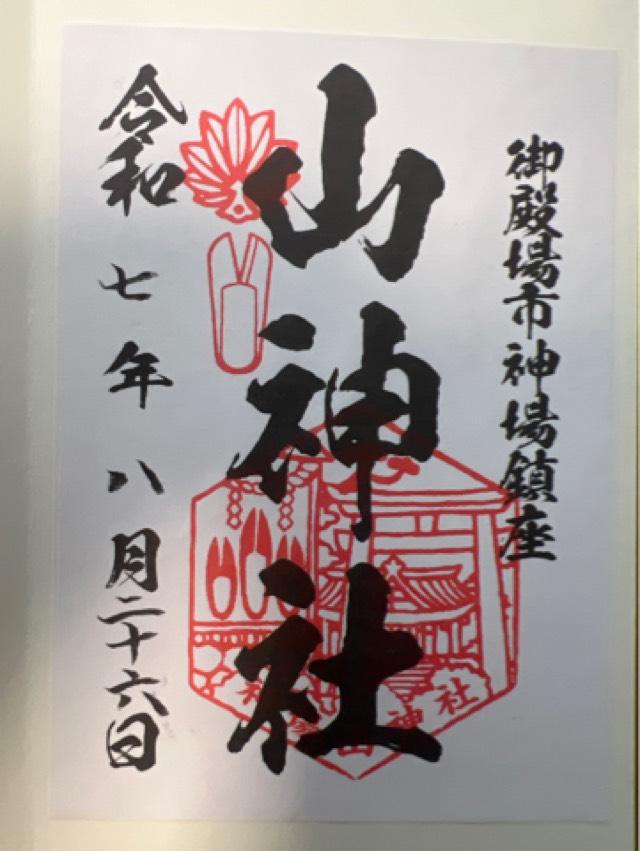 御殿場市神場鎮座
山神社
令和七年八月二十六日
神場山神社